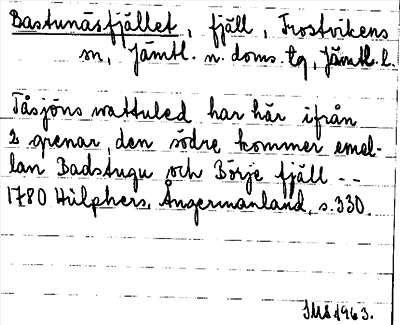 Bastunäsfjället, fjäll, Frostvikens
sn, Jämtl. n. doms. tg, Jämtl. l.
Tåsjöns wattuled har här ifrån
2 grenar, den södre kommer emel-
lan Badstugu och Börje fjäll --
1780 Hülphers, Ångermanland, s. 330.
1963.